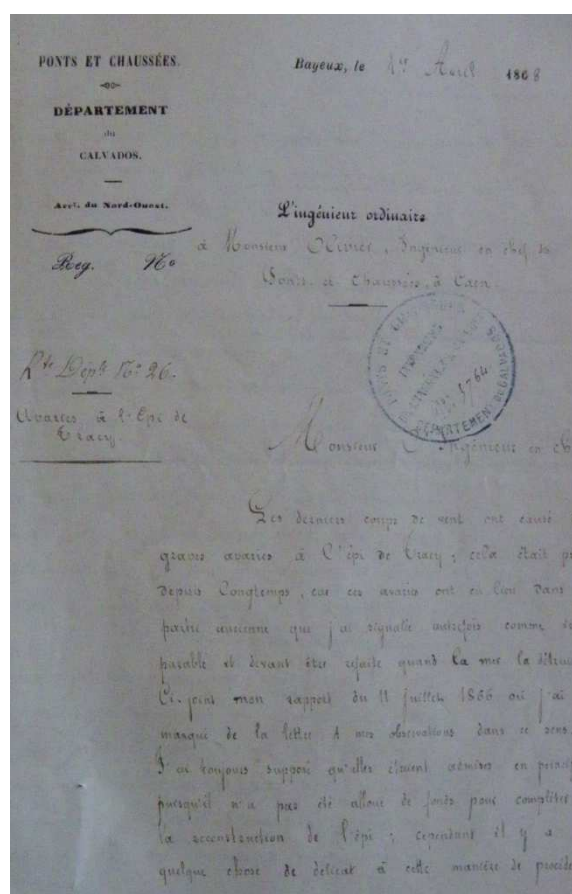 PONTS ET CHAUSSÉES.
DÉPARTEMENT
du
CALVADOS.
Arrt. du Nord-Ouest.
Reg. No
Bayeux, le 1er Avril 1868
L'ingénieur ordinaire
à Monsieur Olivier, Ingénieur en chef des
Ponts et Chaussées, à Caen.
Rte Déple No 26.
Avaries à l'Épi de
Tracy
PONTS ET CHAUSSÉES
8764
DÉPARTEMENT DU CALVADOS
Monsieur l'Ingénieur en ch
Les derniers coups de vent ont causé
graves avaries à l'épi de Tracy ; cela était
depuis longtemps, car ces avaries ont eu lieu dans
partie ancienne que j'ai signalée autrefois comme
parable et devant être refaite quand la mer la détrui
Ci-joint mon rapport du 11 juillet 1866 où j'ai
marqué de la lettre A mes observations dans ce sens.
J'ai toujours supposé qu'elles étaient admises en princip
puisqu'il n'a pas été alloué de fonds pour compléter
la reconstruction de l'épi ; cependant il y a
quelque chose de délicat à cette manière de procéde